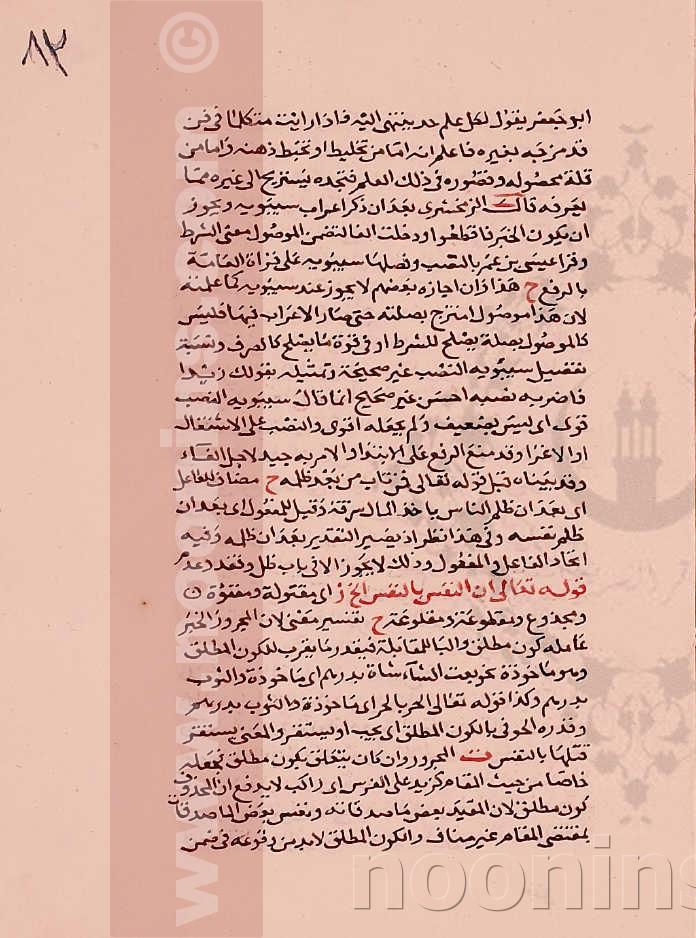 ٨٣
ابو جعفر يقول لكل علم حد ينتهى اليه فاذا رايت متكلما فى فن
قد مزجه بغيره فاعلم انه اما من تخليط او تخبط ذهنه واما من
قلة محصوله وقصوره فى ذلك العلم فتجده يستريح الى غيره مما
يعرفه قال الزمخشرى بعد ان ذكر اعراب سيبويه ويجوز
ان يكون الخبر فاقطعوا ودخلت الفا لتضمن الموصول معنى الشرط
وقرا عيسى بن عمر بالنصب وفضلها سيبويه على قراة العامة
بالرفع ح هذا وان اجازه بعضهم لا يجوز عند سيبويه كما علمته
لان هذا موصول امتزج بصلته حتى صار الاعراب فيها فليس
كالموصول بصلة يصلح للشرط او فى قوة ما يصلح كالصرف ونسبة
تفضيل سيبويه النصب غير صحيحة وتمثيله بقولك زيدا
فاضربه نصبه احسن غير صحيح انما قال سيبويه النصب
قوى اى ليس بضعيف ولم يجعله اقوى والنصب على الاشتغال
او الاغرا وقد منع الرفع على الابتدا والامر به جيد لاجل الفاء
وقد بيناه قبل قوله تعالى فمن تاب من بعد ظلمه ح مضاف للفاعل
اى بعد ان ظلم الناس ياخذ المال سرقة وقيل للمفعول اى بعد ان
ظلم نفسه وفى هذا نظر اذ يصير التقدير بعد ان ظلمه وفيه
اتحاد الفاعل والمفعول وذلك لا يجوز الا فى باب ظن وفقد وعدم
قوله تعالى ان النفس بالنفس الخ ز اى مقتولة ومفقؤة
ومجدوع ومقطوعة ومقلوعة ح تفسير معنى لان المجرور الخبر
عامله كون مطلق والبا للمقابلة فيقدر ما يقرب للكون المطلق
وهو ماخوذة نحو بعت الشاء شاة بدرهم اى ماخوذة والثوب
بدرهم وكذا قوله تعالى الحر بالحر اى ماخوذة والثوب بدرهم
وقدره الحوفى بالكون المطلق اى يجب او يستقر والمعنى يستقر
قتلها بالنفس ت المجرور وان كان يتعلق بكون مطلق فجعله
خاصا من حيث المقام كزيد على الفرس اى راكب لا يدفع ان المحذوف
كون مطلق لان المقيد بعض ماصدقاته وتفسير بعض الماصدقات
بمقتضى المقام غير مناف والكون المطلق لا بد من وقوعه فى ضمن
© www.noorins.com
noorins